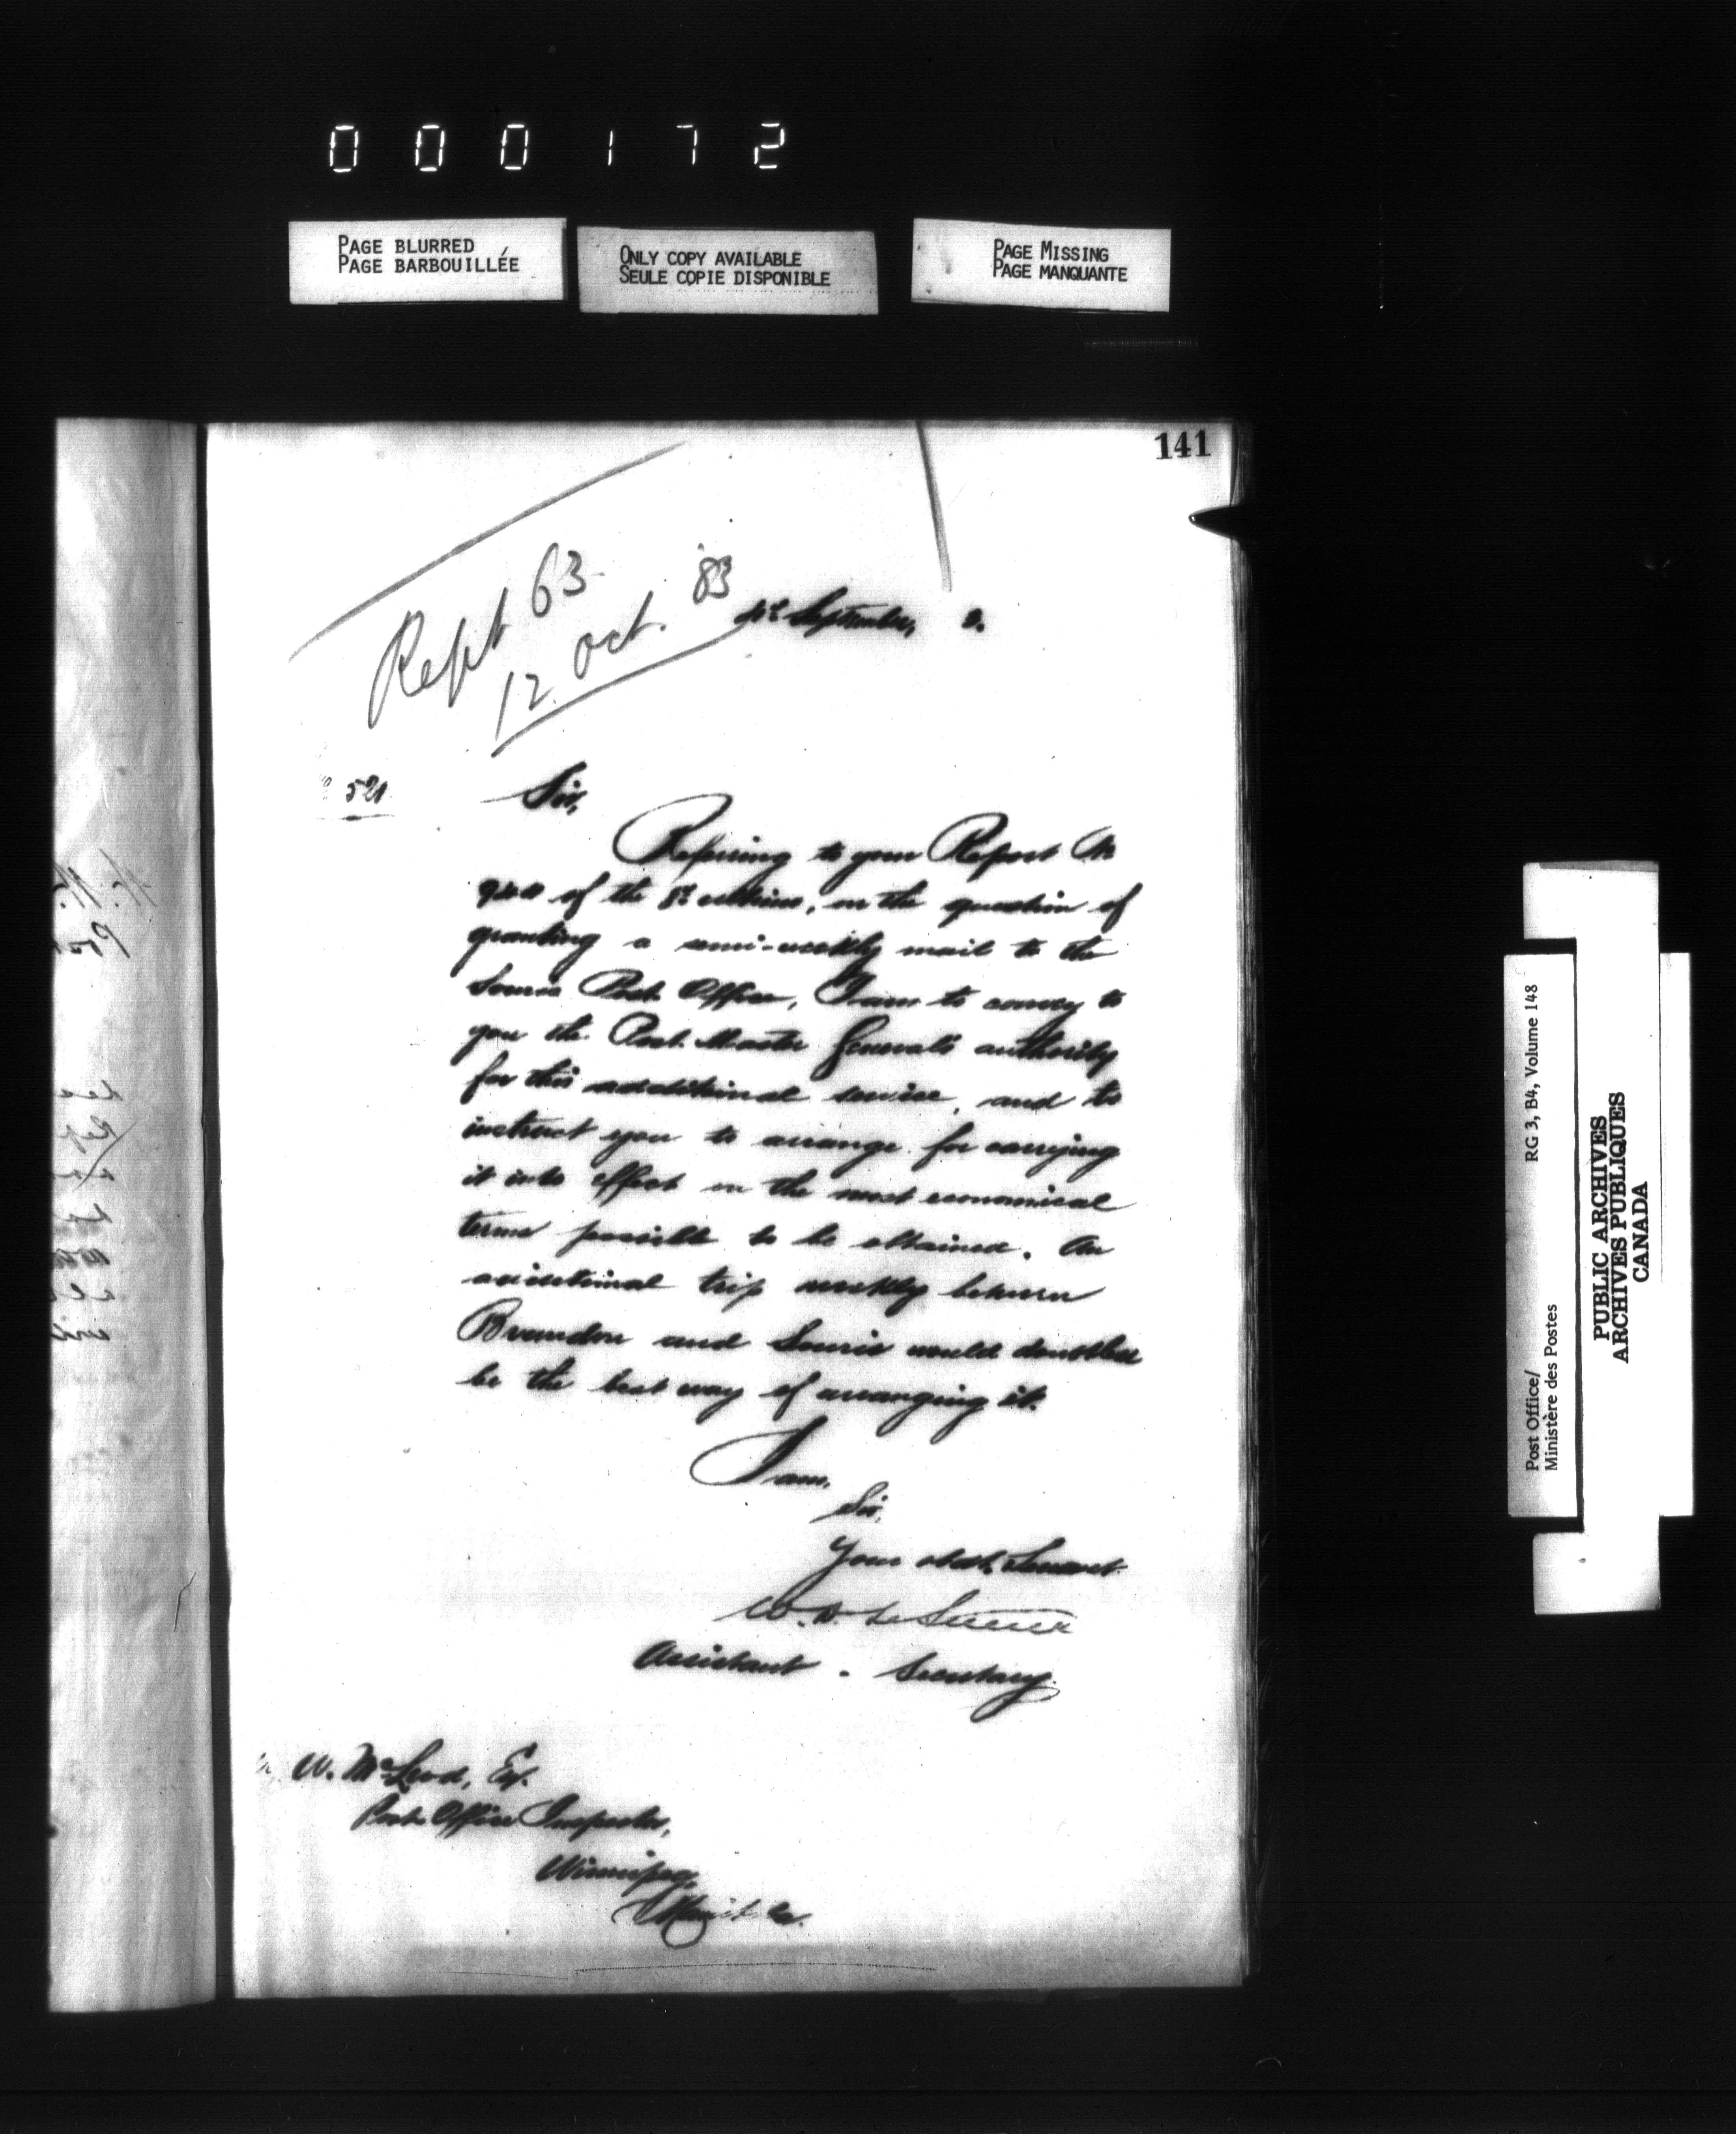 000172
PAGE BLURRED
PAGE BARBOUILLÉE
ONLY COPY AVAILABLE
SEULE COPIE DISPONIBLE
PAGE MISSING
PAGE MANQUANTE
141
Rept 63
12 Oct. '83
September, 3.
521
Sir,
Referring to your Report No
of the 8th ultimo, on the question of
granting a semi-weekly mail to the
Souris Post Office, I am to convey to
you the Post Master General's authority
for this additional service, and to
instruct you to arrange for carrying
it into effect on the most economical
terms possible to be obtained. An
additional trip weekly between
Brandon and Souris would doubtless
be the best way of arranging it.
I am,
Sir,
Your obedt. Servant
W. D. LeSueur
Assistant - Secretary.
W. McLeod, Esq.
Post Office Inspector,
Winnipeg,
Manitoba.
Post Office/
Ministère des Postes
RG 3, B4, Volume 148
PUBLIC ARCHIVES
ARCHIVES PUBLIQUES
CANADA